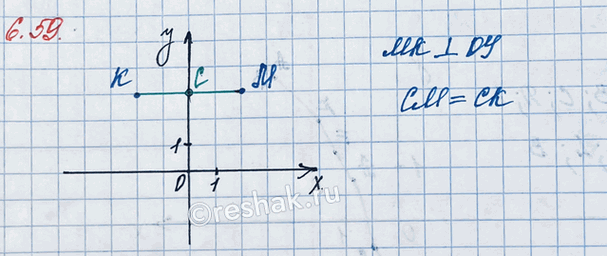 6.59.
y
K C M
1
0 1 x
MK ⊥ OY
CM = CK
©reshak.ru